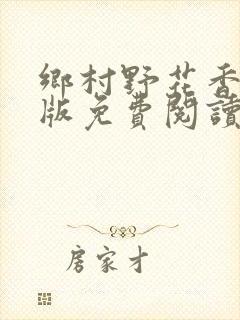 鄉村野花香
版免費閱讀
房家才